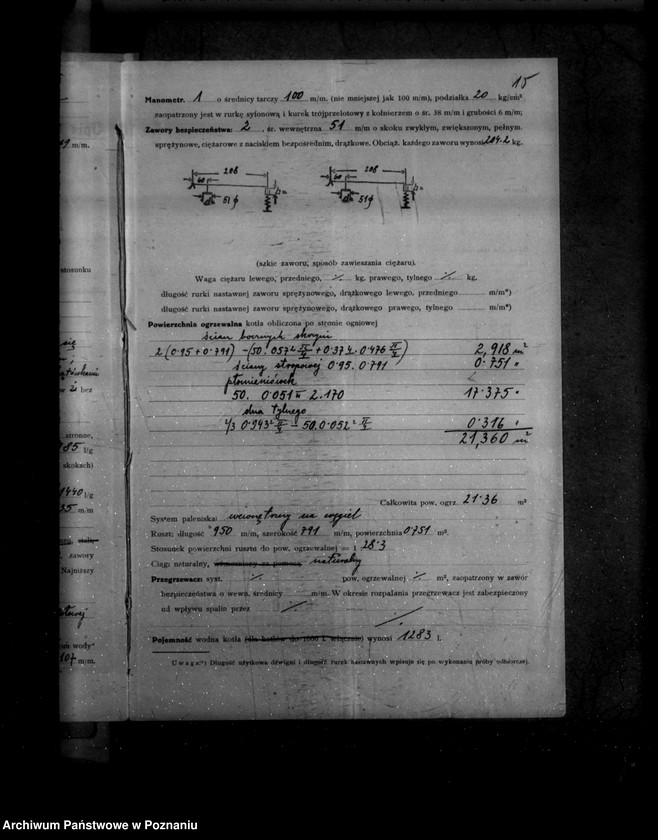 15
Manometr. 1 o średnicy tarczy 100 m/m. (nie mniejszej jak 100 m/m), podziałka 20 kg/cm²
zaopatrzony jest w rurkę syfonową i kurek trójprzelotowy z kołnierzem o śr. 38 m/m i grubości 6 m/m;
Zawory bezpieczeństwa: 2 . śr. wewnętrzna 51 m/m o skoku zwykłym, zwiększonym, pełnym.
sprężynowe, ciężarowe z naciskiem bezpośrednim, drążkowe. Obciąż. każdego zaworu wynosi 204.2 kg.
208 208
60 60
51 φ 51 φ
(szkic zaworu, sposób zawieszania ciężaru).
Waga ciężaru lewego, przedniego, kg. prawego, tylnego kg.
długość rurki nastawnej zaworu sprężynowego, drążkowego lewego, przedniego m/m*)
długość rurki nastawnej zaworu sprężynowego, drążkowego prawego, tylnego m/m*)
Powierzchnia ogrzewalna kotła obliczona po stronie ogniowej
ścian bocznych skrzyni
2 (0.95 + 0.791) – (50. 0.57² π/4 + 0.374. 0.476 π/4) 2,918 m²
ściany stropowej 0.95. 0.791 0.751 "
płomieniówek
50. 0.051 π 2.170 17.375 "
dna tylnego
2/3 0.943² π/4 – 50. 0.052² π/4 0.316 "
21,360 m²
Całkowita pow. ogrz. 21.36 m²
System paleniska: wewnętrzny na węgiel
Ruszt: długość 950 m/m, szerokość 791 m/m, powierzchnia 0.751 m².
Stosunek powierzchni rusztu do pow. ogrzewalnej = 1 : 28.3
Ciąg: naturalny, naturalny
Przegrzewacz: syst. pow. ogrzewalnej m², zaopatrzony w zawór
bezpieczeństwa o wewn. średnicy m/m. W okresie rozpalania przegrzewacz jest zabezpieczony
od wpływu spalin przez
Pojemność wodna kotła (dla kotłów do 1000 l. włącznie) wynosi 1283 l.
Uwaga:*) Długość użytkowa dźwigni i długość rurek nastawnych wpisuje się po wykonaniu próby odbiorczej.
m/m.
stosunku
bez
stronne,
785 l/g
skokach)
1440 l/g
35 m/m
zawory
Najniższy
om wody"
107 m/m.
Archiwum Państwowe w Poznaniu